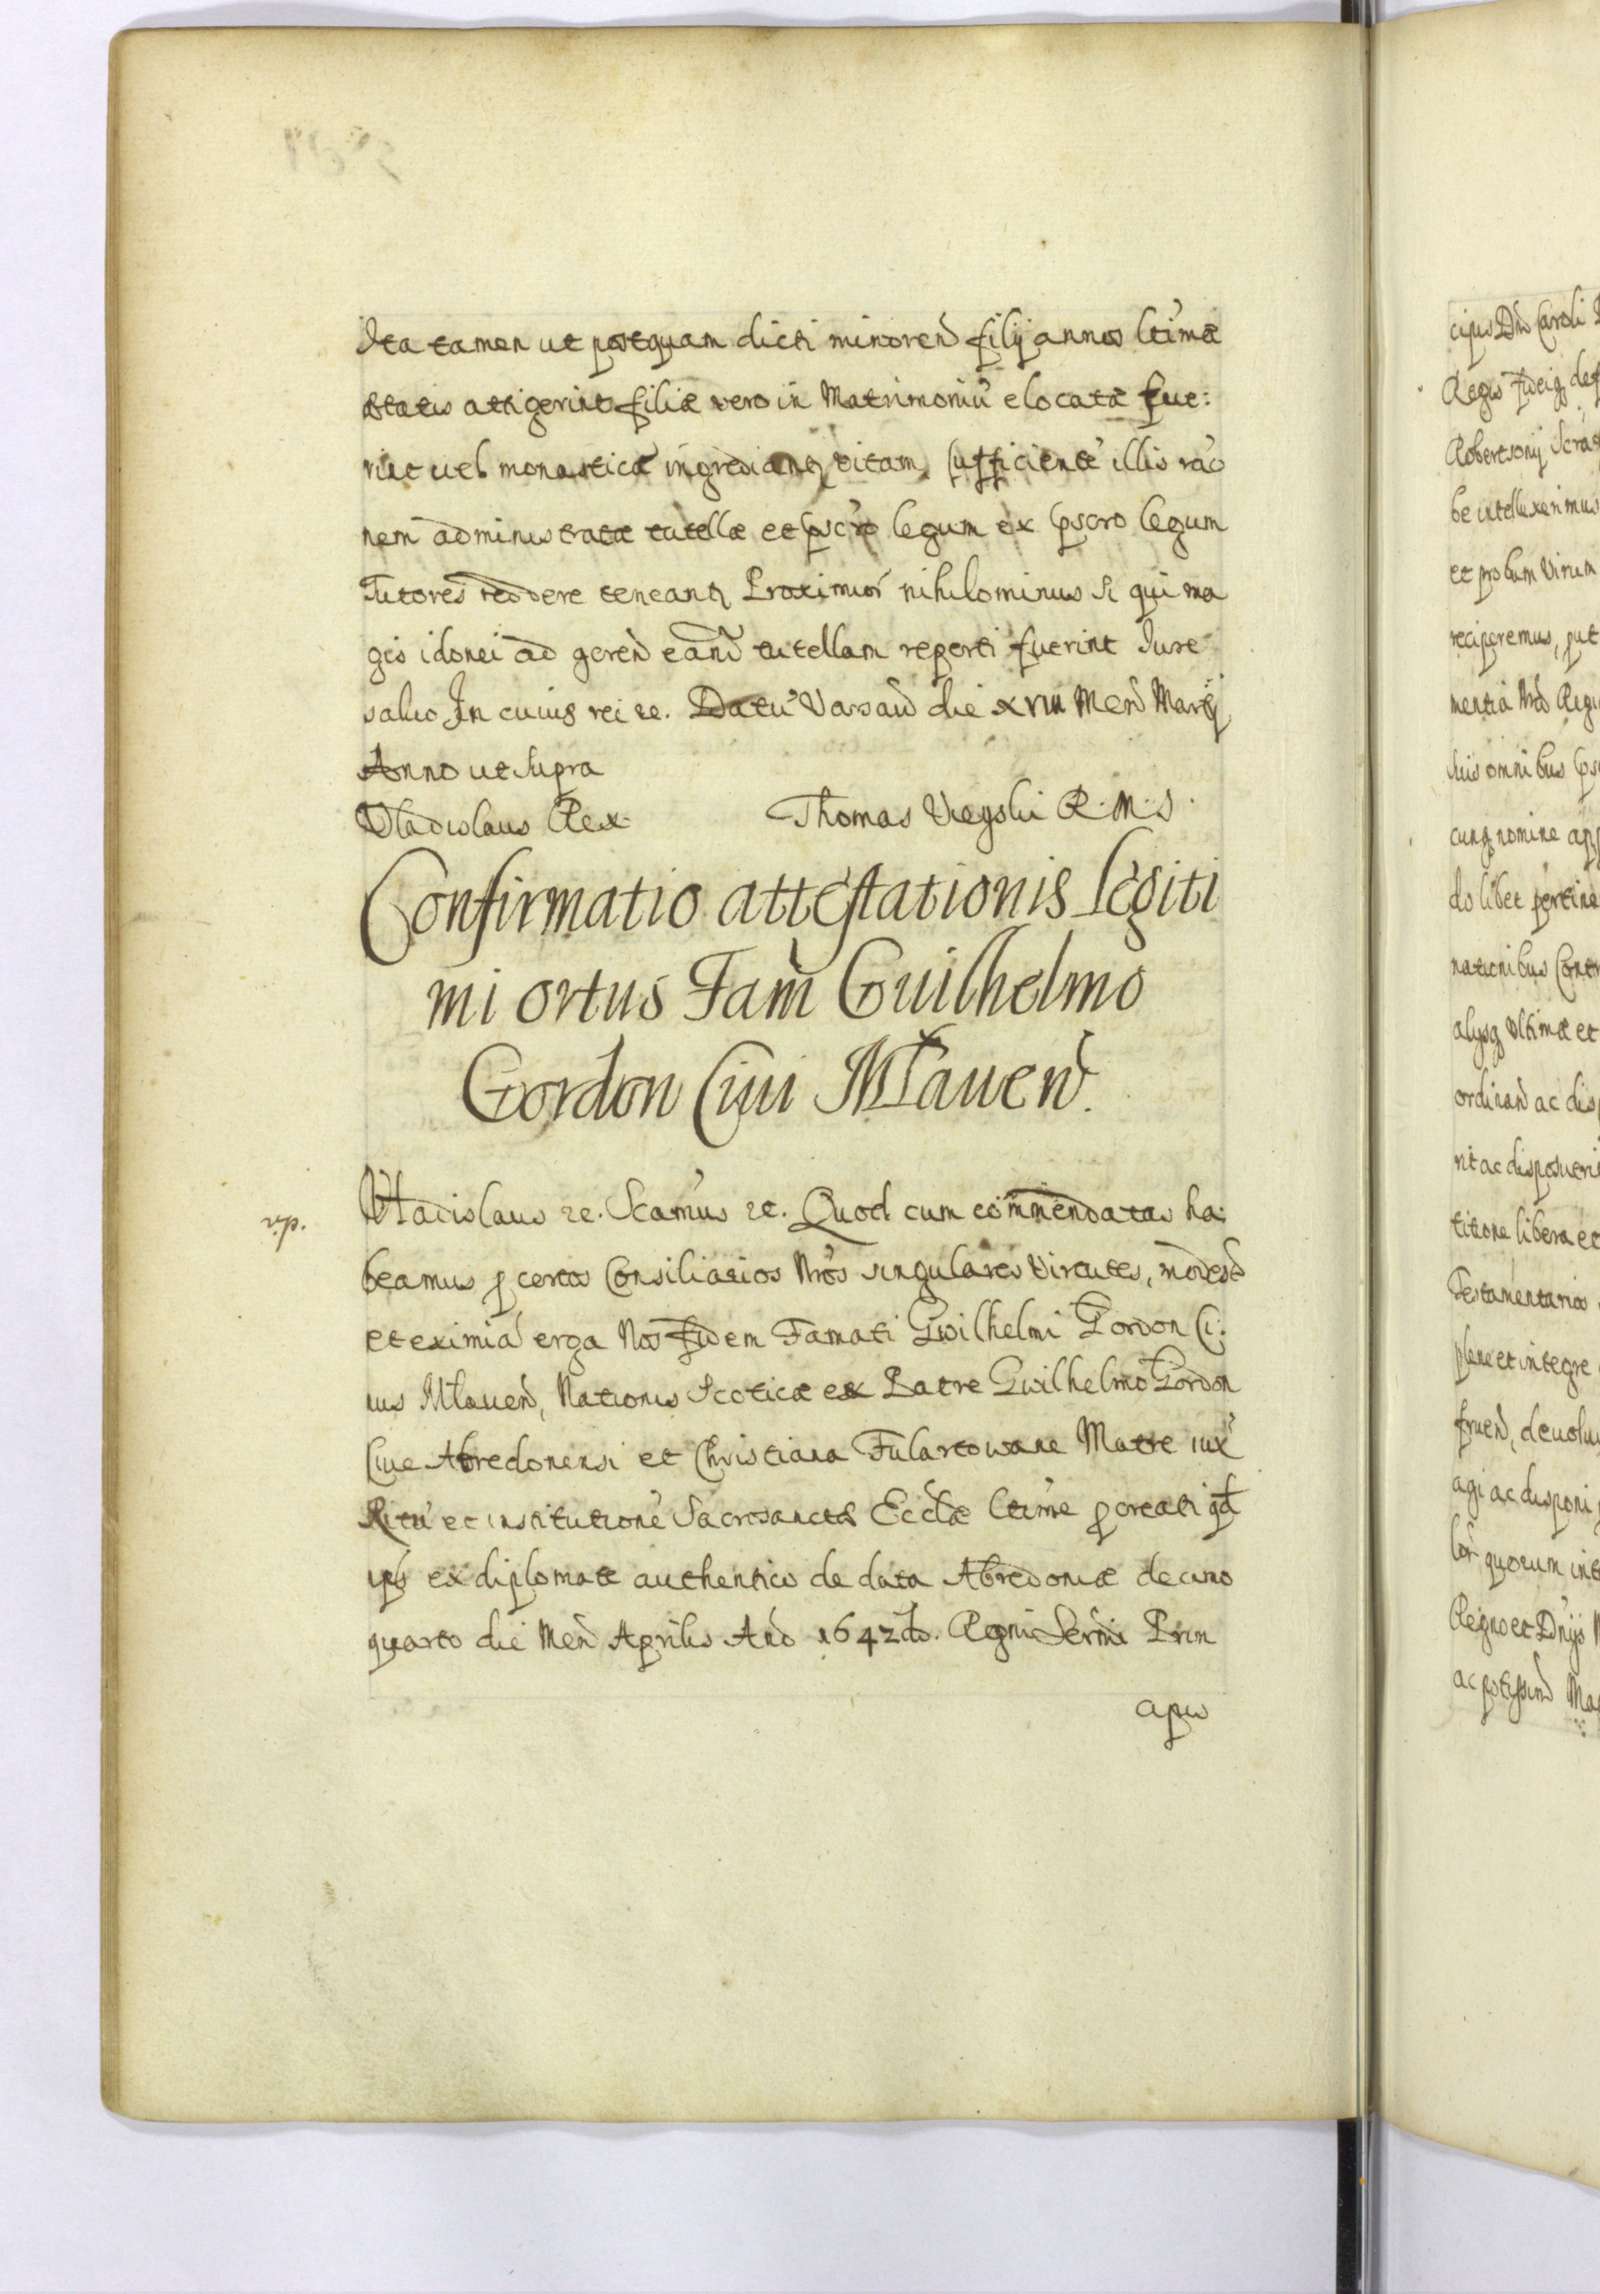 Ita tamen ut postquam dicti minoren filij annos ltimæ
ætatis attigerint filiæ vero in Matrimoniu elocatæ fue:
rint vel monasticã ingrediantꝗ vitam, sufficientẽ illis rao
nem administratæ tutellæ et pscro legum ex pscro legum
Tutores reddere teneantꝗ Proximior nihilominus si qui ma
gis idonei ad geren eand tutellam reperti fuerint Jure
salvo In cuius rei &c. Datu Varsaw die XVIII Men Martij
Anno ut supra
Vladislaus Rex Thomas Vieyski R. M. S.
Confirmatio attestationis legiti
mi ortus Fam Guilhelmo
Gordon Ciui Mławen.
vp.
Vladislaus &c. Scamus &c. Quod cum commendatas ha:
beamus ꝑ certos Consiliarios Nros singulares Virtutes, modest
et eximia erga Nos fidem Famati Gwilhelmi Gordon Ci:
uis Mlauen, Nationis Scoticæ ex Patre Gwilhelmo Gordon
Ciue Abredonensi et Christiana Fulartowane Matre iux
Ritu et institutione Sacrosanctæ Ecclæ ltime ꝓcreati qd
ips ex diplomate authentico de data Abredoniæ decimo
quarto die Men Aprilis Ano 1642do. Regni Sermi Prin
cipis
cipis Dni Caroli
Regis fideiq def
Robertsonij
be intellexerimus
et probum Virum
reciperemus, put
mentia Nra Regi
suis omnibus
cunq nomine
do libet pertine
nationibus Contr
alijsq ultimæ et
ordinan ac dis
rit ac disposueri
titione libera et
Testamentarios
plene et integre
fruen, devolu
agi ac disponi
quorum int
Regno et Dnijs
ac